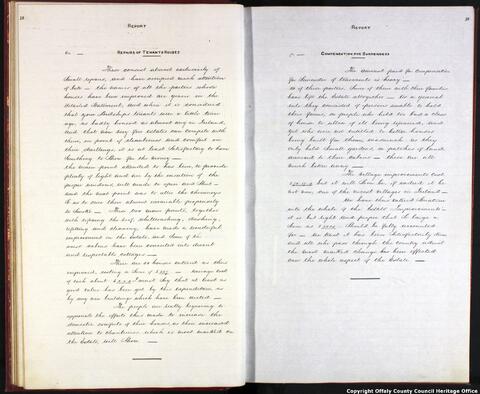 REPORT
6 —
REPAIRS OF TENANTS HOUSES
These consist almost exclusively of
small repairs, and have occupied much attention
of late — the names of all the parties whose
houses have been improved are given in the
detailed Statement, and when it is considered
that your Lordships tenants were a little time
ago as badly housed as almost any in Ireland,
and that now very few estates can compete with
them, in point of cleanliness and comfort in
their dwellings, it is at least satisfactory to have
something to show for the money —
The main point attended to has been, to provide
plenty of light and air by the insertion of the
proper windows, all made to open and shut —
and the next point was to alter the chimneys
so as to cure them almost invariably
to smoke — These two main points, together
with repairing the roof, whitewashing, thatching,
and cleaning, have made a wonderful
improvement on the estate, and some of the
worst cabins have been converted into decent
and respectable cottages —
There are 60 houses entered as thus
improved, costing a sum of
of each about I must say that at least as
good value has been got by this expenditure, as
by any new buildings which have been erected —
The people are really beginning to
appreciate the efforts thus made to increase the
domestic comforts of their homes, as their increased
attention to cleanliness which is most marked on
the Estate, will show —
REPORT
COMPENSATION FOR SURRENDERS
The amount paid for Compensation
for Surrender of tenements is heavy —
of these parties, some of them with their families
have left the Estate altogether — As a general
rule they consisted of persons unable to hold
their farms, or people who held too bad a class
of house to admit of its being repaired, and
yet who were not entitled to better houses
being built for them, inasmuch as they
only held small gardens, or patches of land
annexed to their cabins — these are all
much better away —
The village improvements cost
but it will soon be, if indeed it be
not now, one of the nicest villages in Ireland —
We have thus entered
into the whole of the Estate Improvements —
it is but right and proper that so large a
sum as should be fully accounted
for — At least it has been satisfactorily done
and all who pass through the country admit
the most marked change has been effected
over the whole aspect of the Estate —
Copyright Offaly County Council Heritage Office